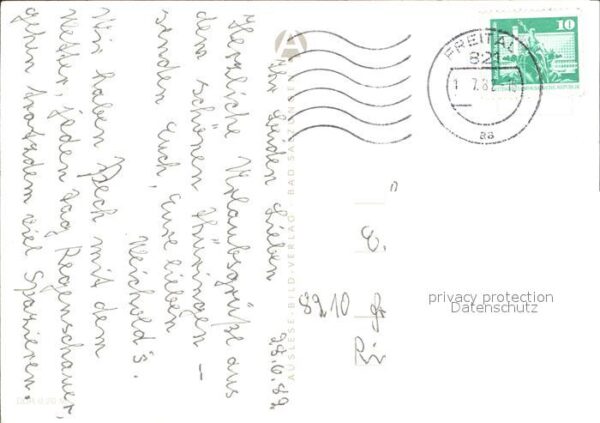 28.6.82
Ihr beiden Lieben
Herzliche Urlaubsgrüße aus
dem schönen Thüringen –
senden Euch, Eure lieben
Reichelt's.
Wir haben Pech mit dem
Wetter, jeden Tag Regenschauer,
gehen trotzdem viel spazieren.
AUSLESE-BILD-VERLAG · BAD SALZUNGEN
FREITAL
821
7.82
aa
10
8210
privacy protection
Datenschutz